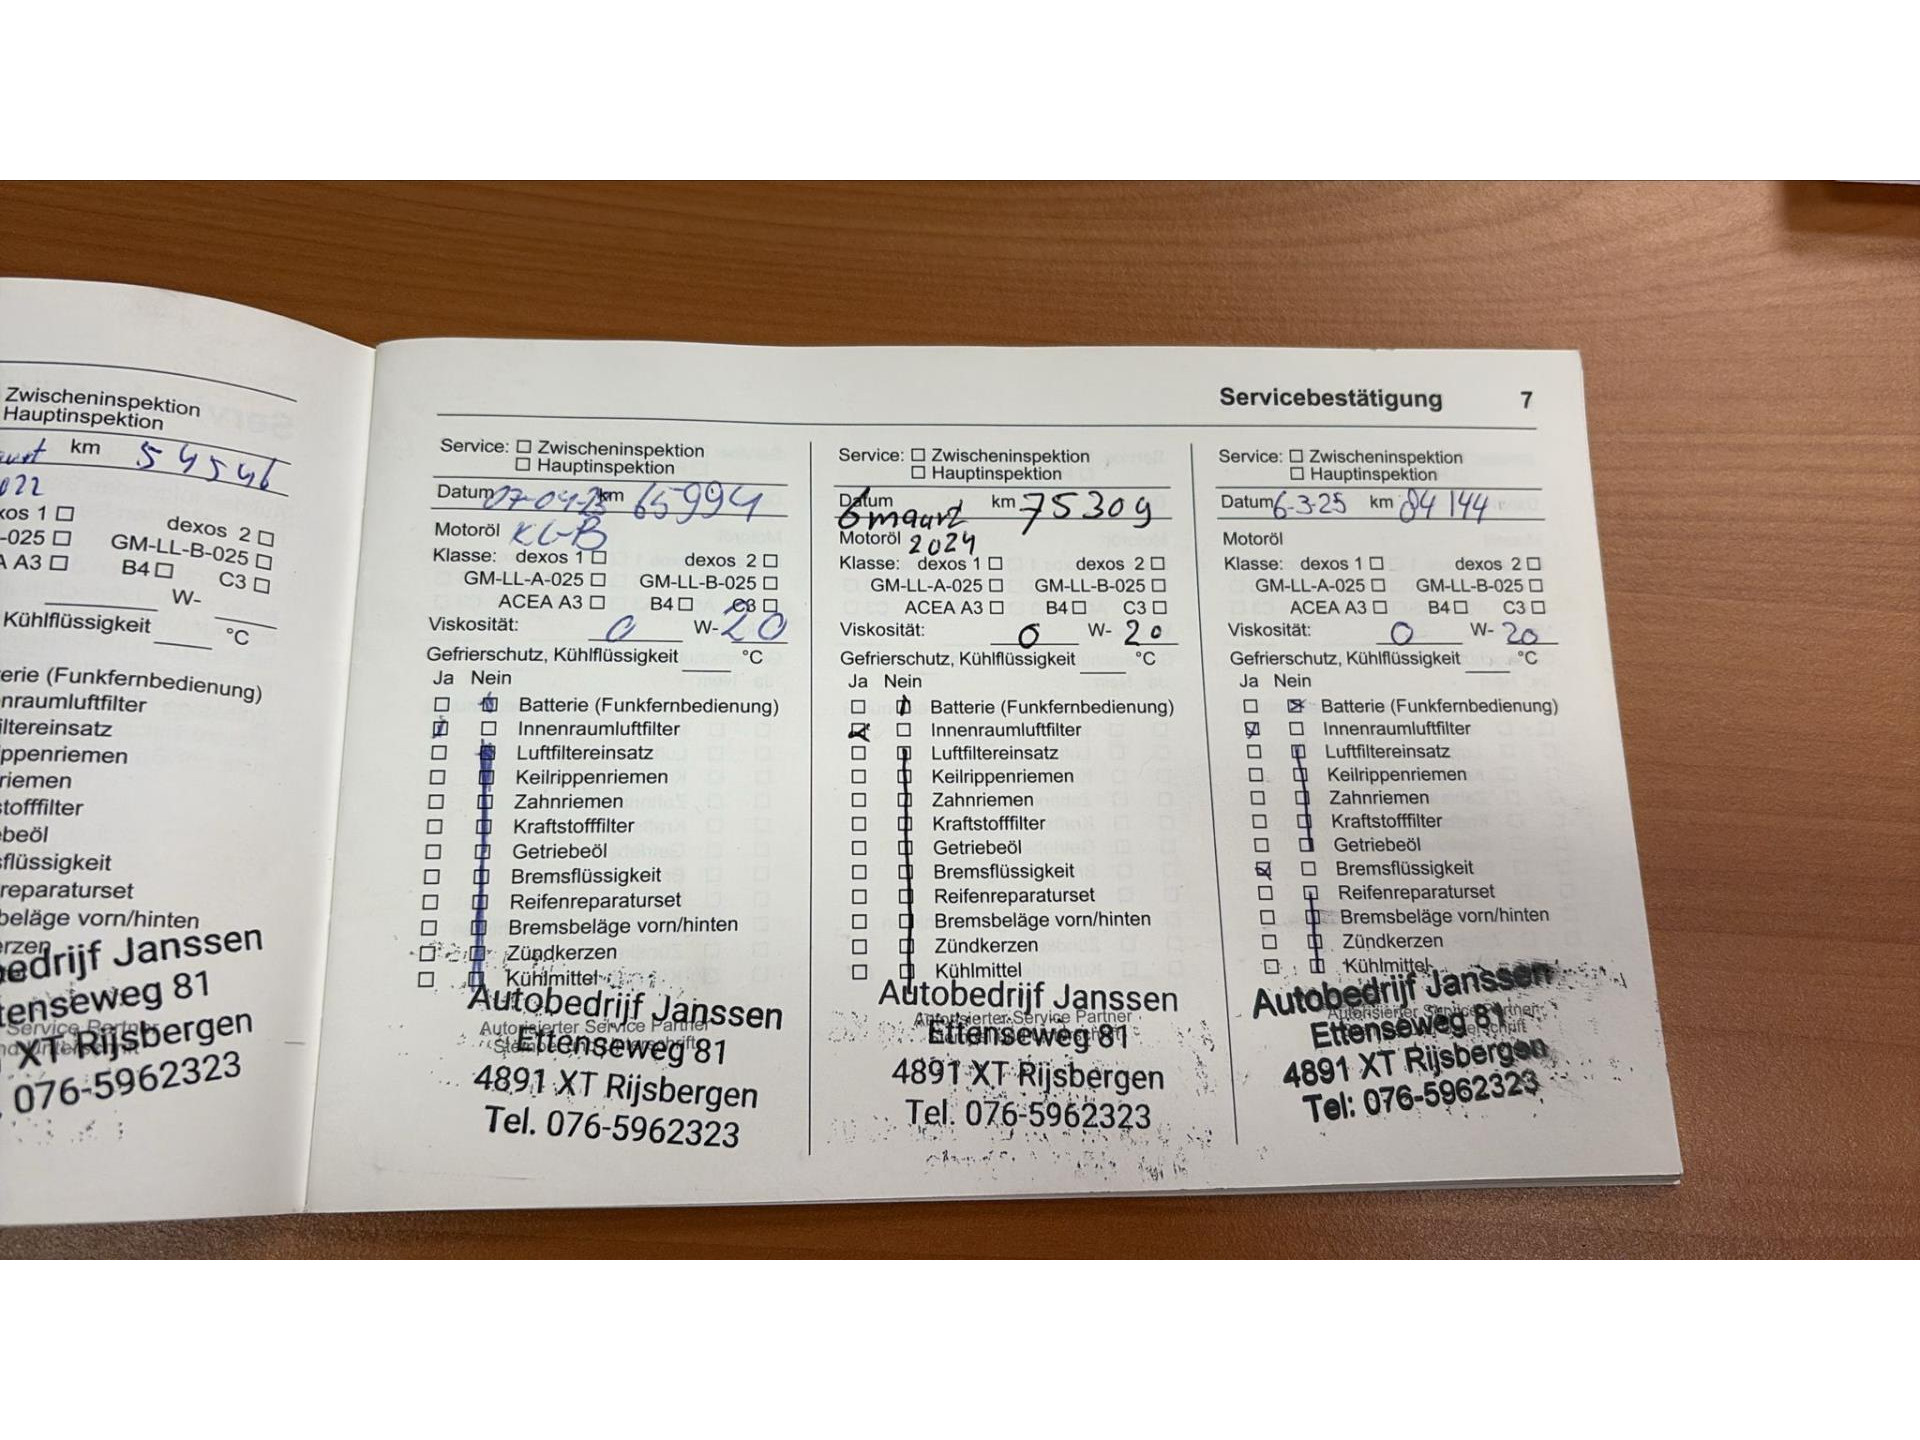 Zwischeninspektion
Hauptinspektion
km 54546
dexos 2
-025 GM-LL-B-025
A3 B4 C3
W-
Kühlflüssigkeit °C
(Funkfernbedienung)
beläge vorn/hinten
Janssen
81
XT Rijsbergen
076-5962323
Servicebestätigung 7
Service: Zwischeninspektion
Hauptinspektion
Datum 07-04-23 km 65994
Motoröl KL-B
Klasse: dexos 1 dexos 2
GM-LL-A-025 GM-LL-B-025
ACEA A3 B4 C3
Viskosität: 0 W- 20
Gefrierschutz, Kühlflüssigkeit °C
Ja Nein
Batterie (Funkfernbedienung)
Innenraumluftfilter
Luftfiltereinsatz
Keilrippenriemen
Zahnriemen
Kraftstofffilter
Getriebeöl
Bremsflüssigkeit
Reifenreparaturset
Bremsbeläge vorn/hinten
Zündkerzen
Kühlmittel
Autobedrijf Janssen
Autorisierter Service Partner
Ettenseweg 81
4891 XT Rijsbergen
Tel. 076-5962323
Service: Zwischeninspektion
Hauptinspektion
Datum 6 maart km 75309
Motoröl 2024
Klasse: dexos 1 dexos 2
GM-LL-A-025 GM-LL-B-025
ACEA A3 B4 C3
Viskosität: 0 W- 20
Gefrierschutz, Kühlflüssigkeit °C
Ja Nein
Batterie (Funkfernbedienung)
Innenraumluftfilter
Luftfiltereinsatz
Keilrippenriemen
Zahnriemen
Kraftstofffilter
Getriebeöl
Bremsflüssigkeit
Reifenreparaturset
Bremsbeläge vorn/hinten
Zündkerzen
Kühlmittel
Autobedrijf Janssen
Autorisierter Service Partner
Ettenseweg 81
4891 XT Rijsbergen
Tel. 076-5962323
Service: Zwischeninspektion
Hauptinspektion
Datum 6-3-25 km 84144
Motoröl
Klasse: dexos 1 dexos 2
GM-LL-A-025 GM-LL-B-025
ACEA A3 B4 C3
Viskosität: 0 W- 20
Gefrierschutz, Kühlflüssigkeit °C
Ja Nein
Batterie (Funkfernbedienung)
Innenraumluftfilter
Luftfiltereinsatz
Keilrippenriemen
Zahnriemen
Kraftstofffilter
Getriebeöl
Bremsflüssigkeit
Reifenreparaturset
Bremsbeläge vorn/hinten
Zündkerzen
Kühlmittel
Autobedrijf Janssen
Autorisierter Service Partner
Ettenseweg 81
4891 XT Rijsbergen
Tel: 076-5962323